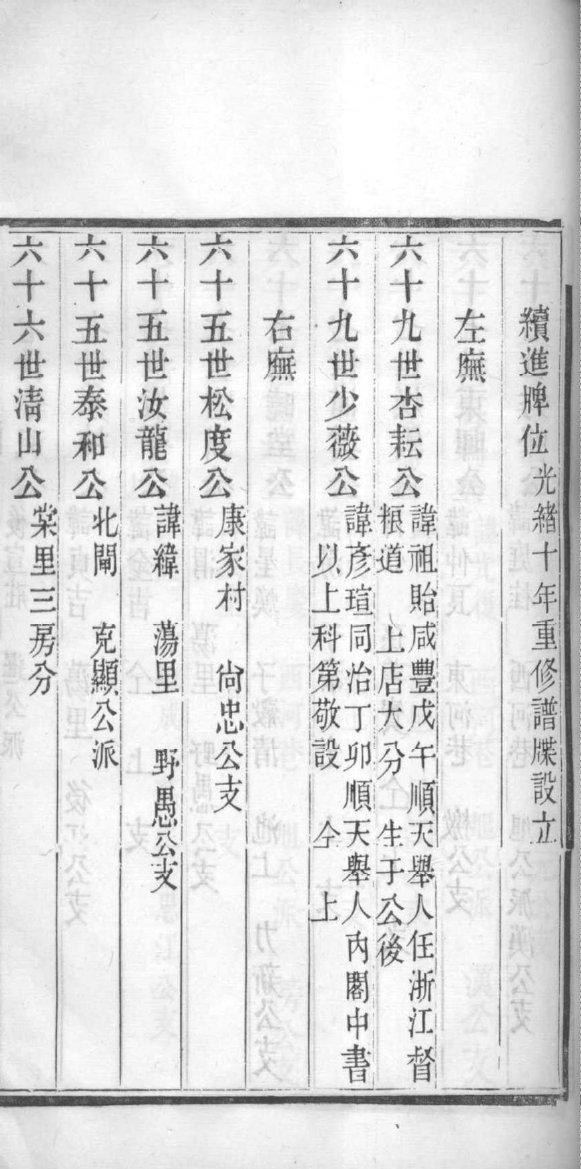 續進牌位 光緒十年重修譜牒設立
左廡
六十九世杏耘公 諱祖貽咸豐戊午順天舉人任浙江督
糧道 上店大分 生于公後
六十九世少薇公 諱彥瑄同治丁卯順天舉人內閣中書
以上科第敬設 仝上
右廡
六十五世松度公 康家村 尙忠公支
六十五世汝龍公 諱緯 蕩里 野愚公支
六十五世泰和公 北閘 克顯公派
六十六世清山公 棠里三房分